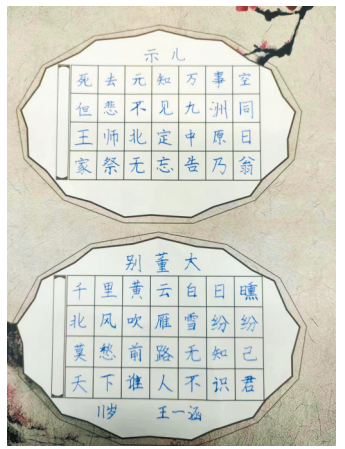 示儿
死去元知万事空
但悲不见九洲同
王师北定中原日
家祭无忘告乃翁
别董大
千里黄云白日曛
北风吹雁雪纷纷
莫愁前路无知己
天下谁人不识君
11岁 王一涵